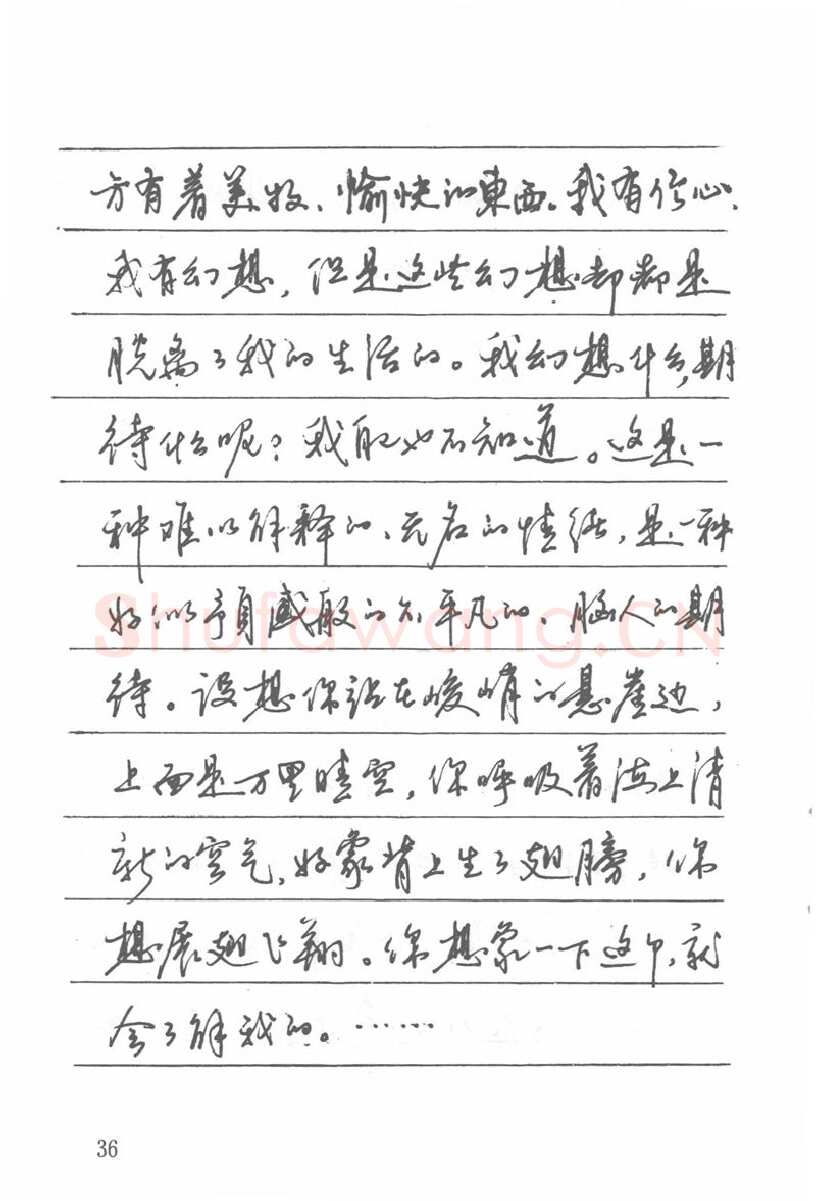 方有着美妙、愉快的東西。我有信心、
我有幻想，但是这些幻想却都是
脱离了我的生活的。我幻想什么，期
待什么呢？我配也不知道。这是一
种难以解释的、无名的情绪，是一种
好似預感般的不平凡的、恼人的期
待。设想你站在峻峭的悬崖边，
上面是万里晴空，你呼吸着海上清
新的空气，好象背上生了翅膀，你
想展翅飞翔。你想象一下这个，就
会了解我的。……
Shufawang.CN
36